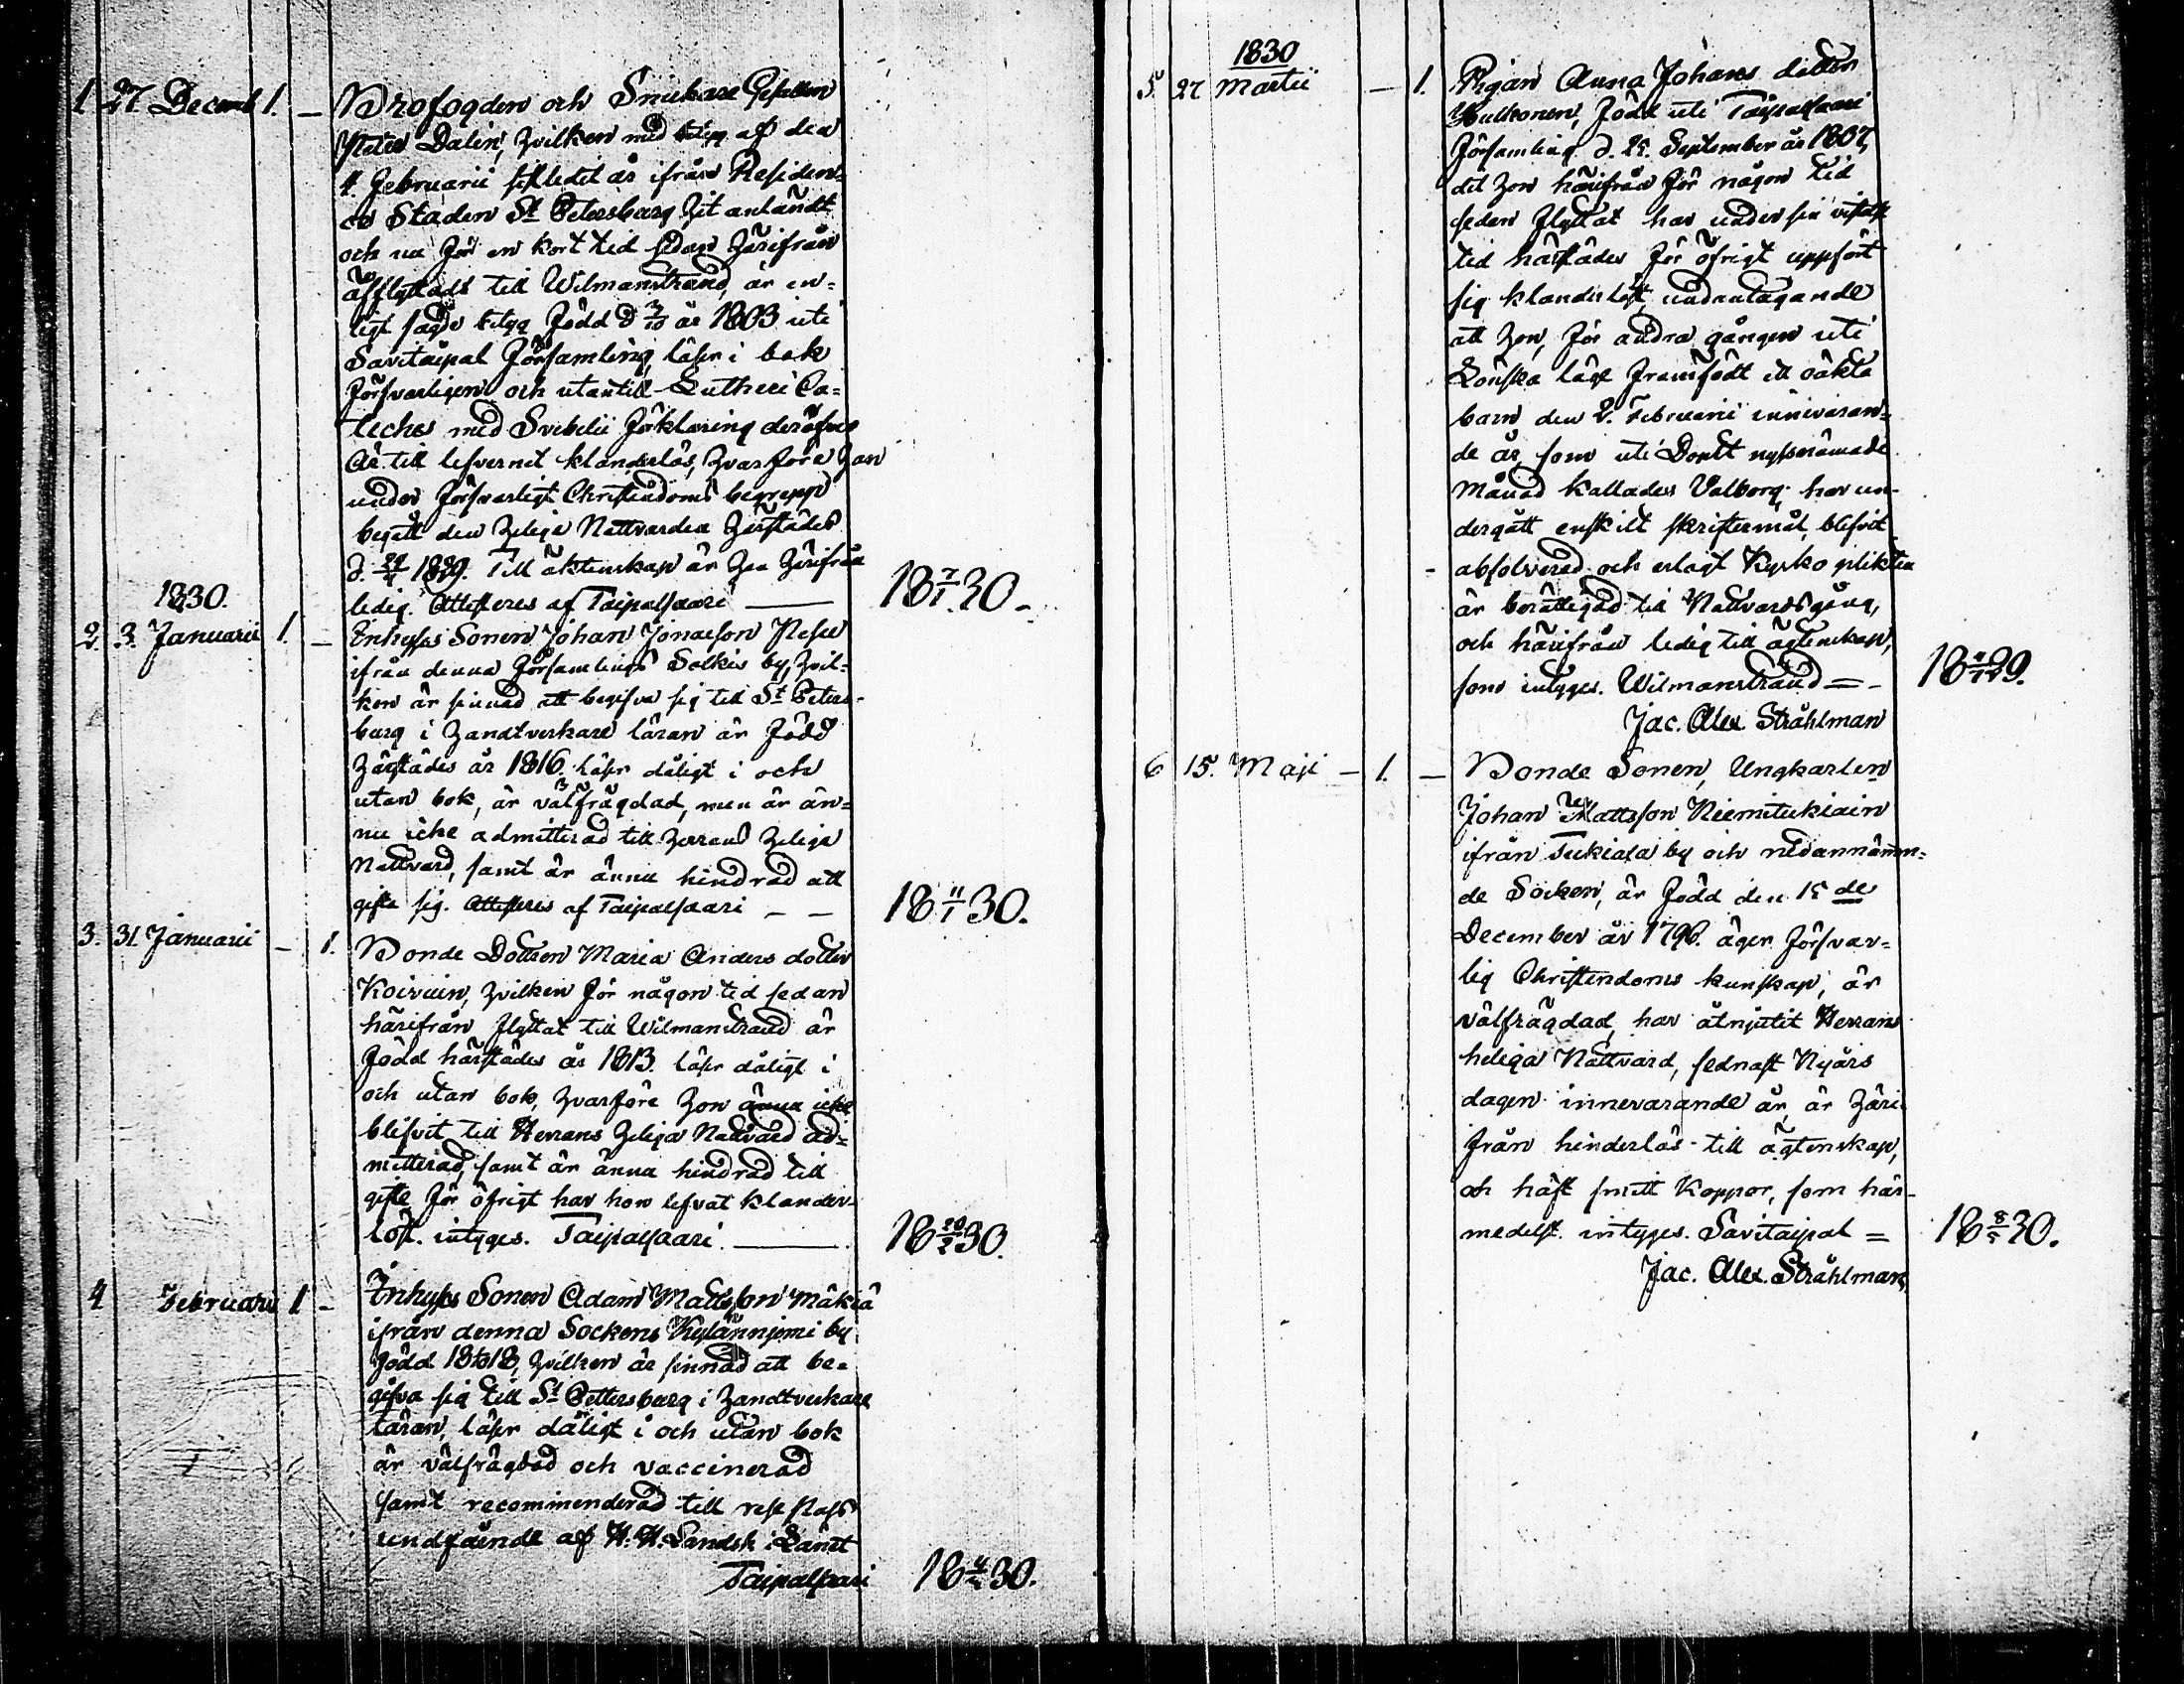 1 27 Decemb 1. — Profogden och Snickare Gesällen
Petter Dalin, hvilken med betyg af den
4 Februarii sistledit år ifrån Residen-
ce Staden St Petersburg hit anländt
och nu för en kort tid sedan härifrån
afflyttadt till Wilmanstrand, är en-
ligt sagde betyg född d 3/10 år 1803 uti
Savitaipal Församling, läser i bok
försvarligen och utantill Lutheri Ca-
teches med Svebelii förklaring deröfver
Är till lefvernet klanderlös, hvarföre han
under försvarligt Christendoms begrepp
begått den heliga Nattvarden härstädes
d. 1829. Till äktenskap är han härifrån
ledig. Attesteres af Taipalsaari — 18 7/1 30.
1830.
2. 3. Januarii 1. — Inhyses Sonen Johan Jonaeson Pesu
ifrån denna Församlings Solkis by, hvil-
ken är sinnad att begifva sig till St Peters-
burg i Handtverkare läran är född
härstädes år 1816. läser dåligt i och
utan bok, är välfrägdad, men är än-
nu icke admitterad till Herrans heliga
Nattvard, samt är ännu hindrad att
gifta sig. Attesteres af Taipalsaari — — 18 11/1 30.
3. 31 Januarii — 1. Bonde Dottren Maria Anders dotter
Koivuin, hvilken för någon tid sedan
härifrån flyttat till Wilmanstrand är
född härstädes år 1813. läser dåligt i
och utan bok, hvarföre hon ännu icke
blifvit till Herrans heliga Nattvard ad-
mitterad, samt är ännu hindrad till
gifte för öfrigt har hon lefvat klander-
löst. intyges. Taipalsaari. — 18 20/2 30.
4 Februarii 1 — Inhyses Sonen Adam Mattsson Mäkiä
ifrån denna Sockens Kylänniemi by
född 1818, hvilken är sinnad att be-
gifva sig till St Pettersburg i Handtverkare
läran, läser dåligt i och utan bok
är välfrägdad och vaccinerad
samt recommenderad till respass
undfående af H. H. Landsh. i Länet
Taipalsaari 18 30.
1830
5. 27 Martii — 1. Pigan Anna Johans dotter
Hulkonen, född uti Taipalsaari
Församling d. 25. September år 1807,
det hon härifrån för någon tid
sedan flyttat har under sin vistelse
tid härstädes för öfrigt uppfört
sig klanderlöst, undantagande
att hon, för andra gången uti
Lönska läge framfödt ett oäkta
barn den 2. Februarii innivaran-
de år, som uti Dopet nyssnämnde
Månad kallades Valborg. har un-
dergått enskilt skriftermål, blifvit
absolverad och erlagt Kyrko plikten
är berättigad till Nattvardsgång,
och härifrån ledig till ägtenskap,
som intyges. Wilmanstrand = — 18 29.
Jac. Alex Stråhlman
6 15. Maji — 1. — Bonde Sonen, Ungkarlen
Johan Mattsson Niemitukiain
ifrån Tukiala by och nedannämn-
de Socken, är född den 15 de
December år 1796. äger försvar-
lig Christendoms kunskap, är
välfrägdad, har åtnjutit Herrans
heliga Nattvard, sednast Nyårs
dagen innevarande år, är häri-
från hinderlös till ägtenskap,
och haft smitt Koppor, som här-
medelst. intyges. Savitaipal = 18 8/5 30.
Jac. Alex. Stråhlman